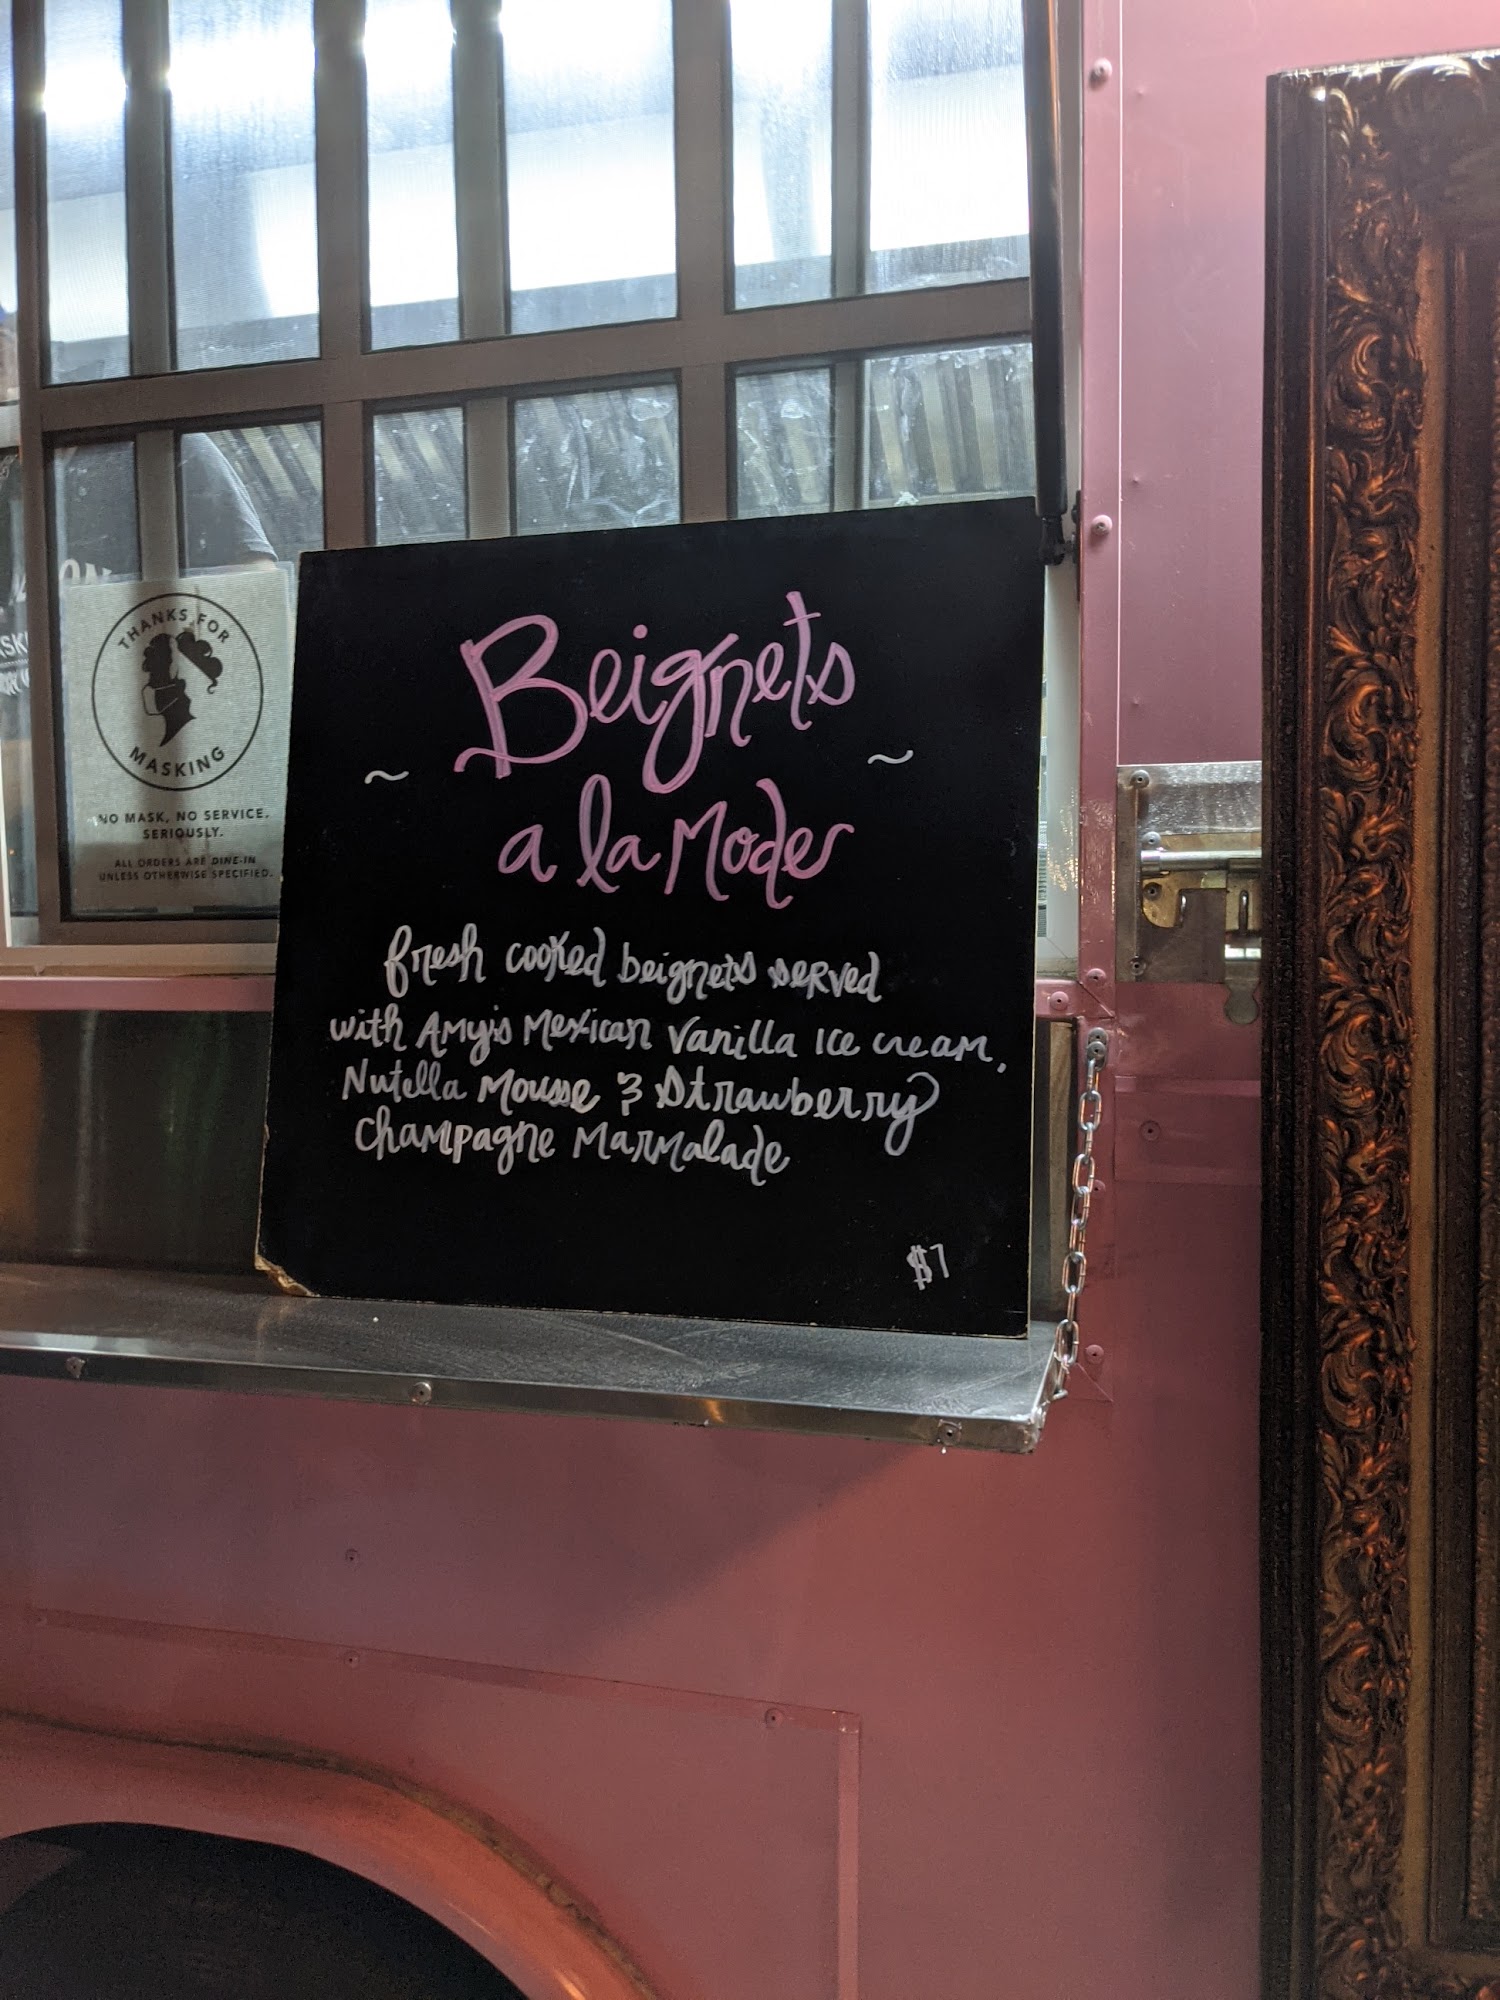 Beignets
~ ~
a la Mode
fresh cooked beignets served
with Amy's Mexican Vanilla Ice cream,
Nutella Mousse & Strawberry
Champagne Marmalade
$7
THANKS FOR
MASKING
NO MASK, NO SERVICE.
SERIOUSLY.
ALL ORDERS ARE DINE-IN
UNLESS OTHERWISE SPECIFIED.